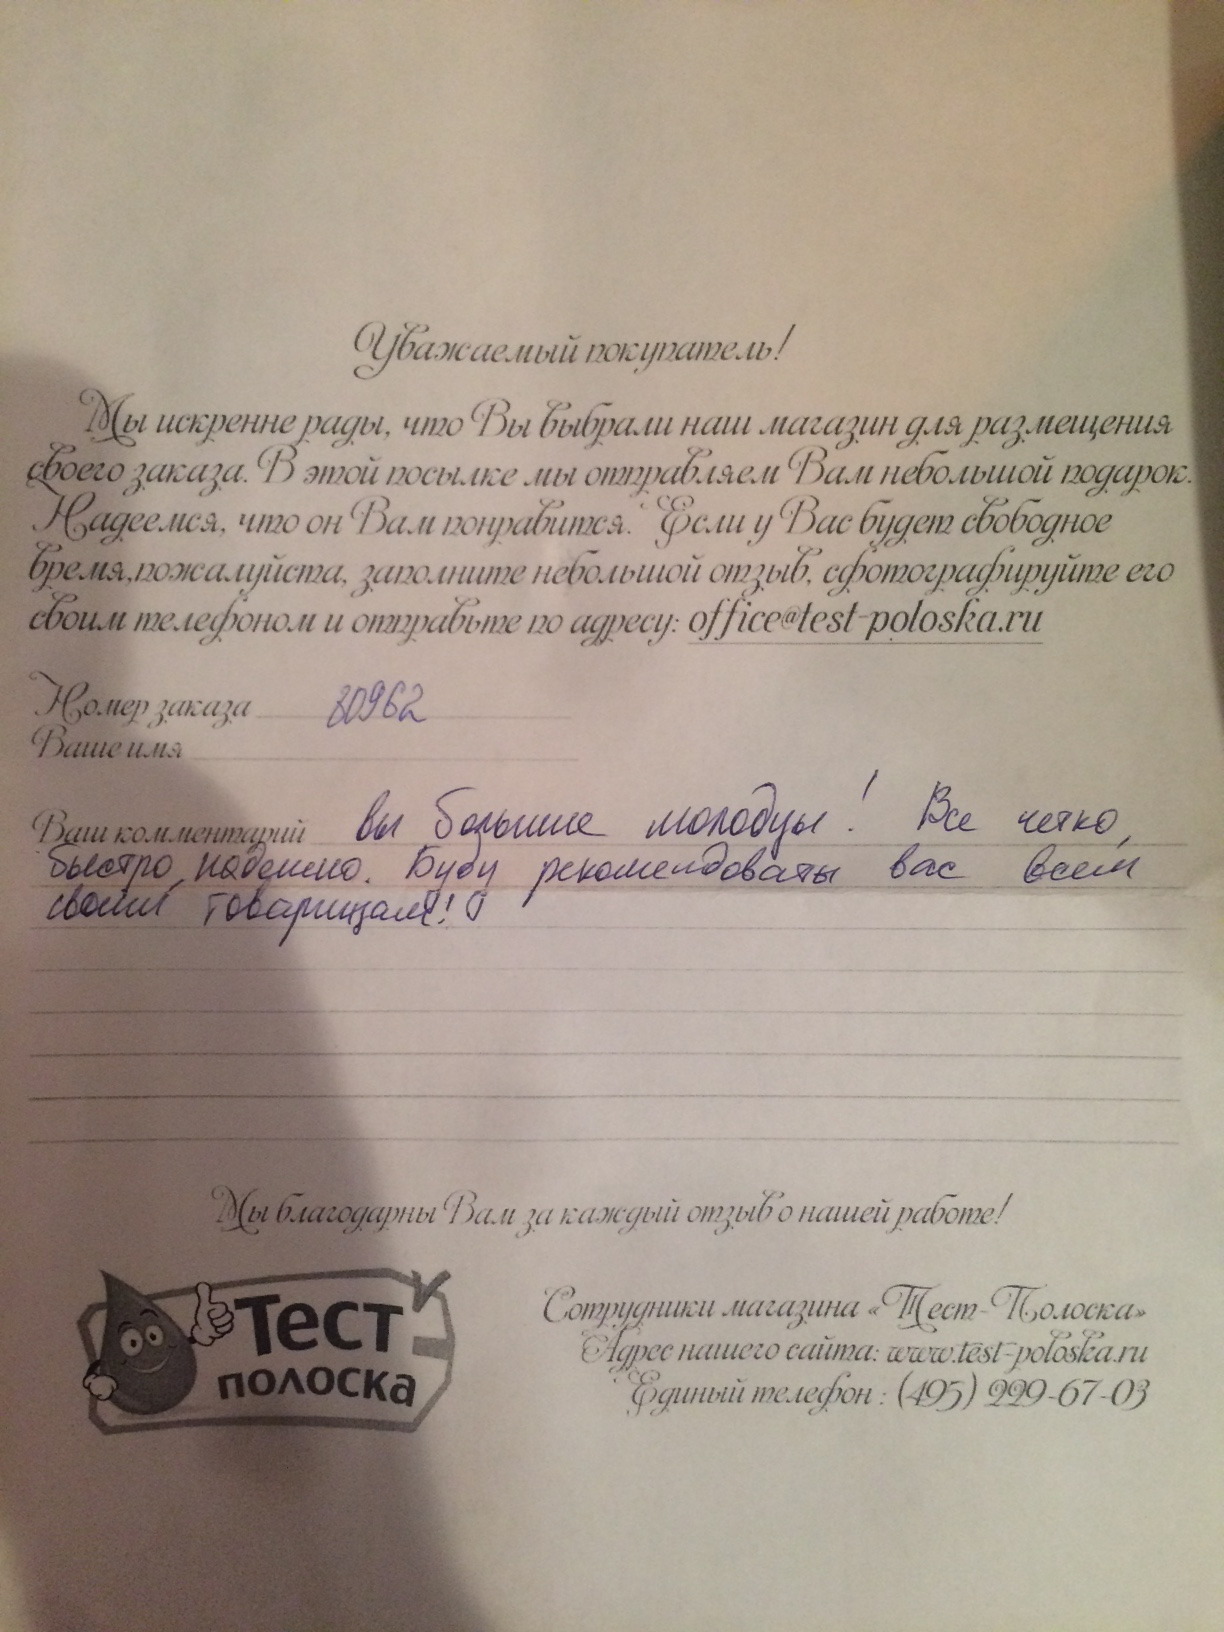 Уважаемый покупатель!
Мы искренне рады, что Вы выбрали наш магазин для размещения
своего заказа. В этой посылке мы отправляем Вам небольшой подарок.
Надеемся, что он Вам понравится. Если у Вас будет свободное
время,пожалуйста, заполните небольшой отзыв, сфотографируйте его
своим телефоном и отправьте по адресу: office@test-poloska.ru
Номер заказа 80962
Ваше имя
Ваш комментарий Вы большие молодцы! Все четко,
быстро, надежно. Буду рекомендовать вас всем
своим товарищам!
Мы благодарны Вам за каждый отзыв о нашей работе!
Тест
полоска
Сотрудники магазина «Тест-Полоска»
Адрес нашего сайта: www.test-poloska.ru
Единый телефон : (495) 229-67-03